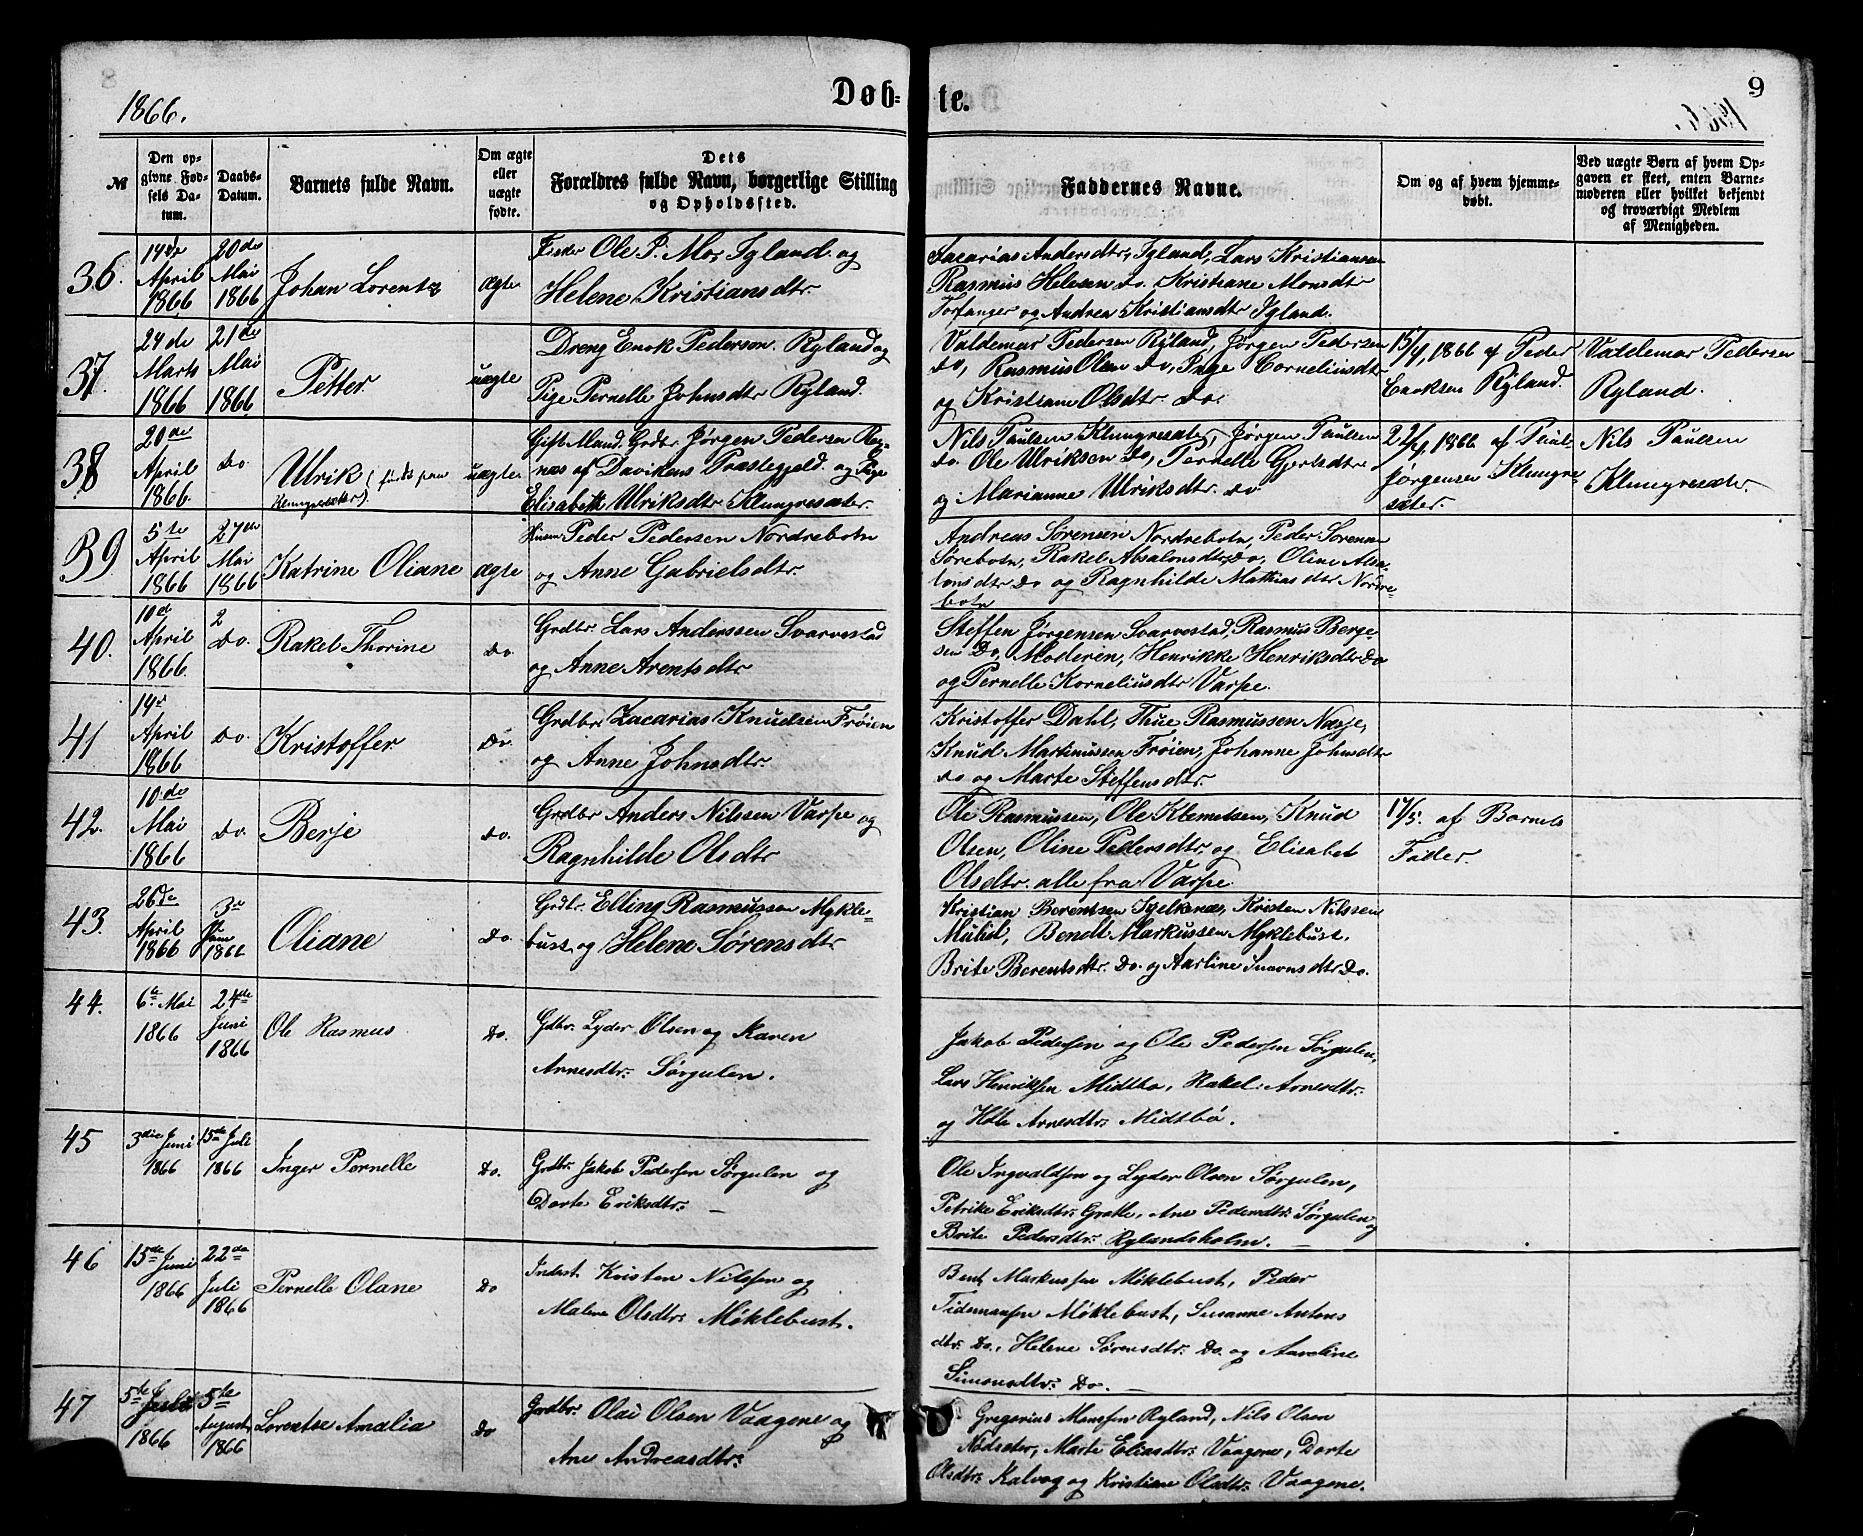 8
1866.
Døb=
te.
9
№
Den op-
givne Fød-
sels Da-
tum.
Daabs-
Datum.
Barnets fulde Navn.
Om ægte
eller
uægte
fødte.
Dets
Forældres fulde Navn, borgerlige Stilling
og Opholdssted.
Faddernes Navne.
Om og af hvem hjemme-
døbt.
Ved uægte Børn af hvem Op-
gaven er skeet, enten Barne-
moderen eller hvilket bekjendt
og troværdigt Medlem
af Menigheden.
36.
14de
April
1866
20de
Mai
1866
Johan Lorentz
Ægte
Ole P. Mor Igland og
Helene Kristiansdtr.
Sacarias Andersdtr, Igland, Lars Kristiansen
Rasmus Helesen do. Kristiane Monsdtr
Torfanger og Andrea Kristiansdtr Igland.
37.
24de
Marts
1866
21de
Mai
1866
Petter
uægte
Dreng Enok Pederson Ryland og
Pige Pernelle Johnsdtr Ryland.
Valdemar Pedersen Ryland, Jørgen Pedersen
do, Rasmus Olsen do, Inge Corneliusdtr
og Kristiane Olsdtr do.
15/4 1866 af Peder
Enoksen Ryland.
Valdemar Pedersen
Ryland.
38
20de
April
1866
do.
Ulrik (
uægte
Gift Mand. Grdbr Jørgen Pedersen
næs af Davikens Præstegjeld. og Pige
Elisabeth Ulriksdtr Klungresæter.
Nils Paulsen Klungresæter, Jørgen Paulsen
do. Ole Ulriksen do, Pernelle Gertsdtr
og Marianne Ulriksdtr. do
22/4 1866 af Paul
Jørgensen Klungre-
sæter.
Nils Paulsen
Klungresæter.
39
5te
April
1866
27de
Mai
1866
Katrine Oliane
Ægte
Husm Peder Pedersen Nordrebotn
og Anne Gabrielsdtr.
Andreas Sørensen Nordrebotn, Peder Sørensen
Sørebotn, Rakel Absalonsdtr do, Oline Absa-
lonsdtr do og Ragnhilde Mathiasdtr Nordre-
botn
40.
10de
April
1866.
2
do.
Rakel Thorine
do.
Grdbr Lars Anderssen Svarvestad
og Anne Arentsdtr.
Steffen Jørgensen Svarvestad, Rasmus Berge
sen do, Moderen, Henrikke Henriksdtr do
og Pernelle Korneliusdtr Varpe.
41
14de
April
1866
do.
Kristoffer
do.
Grdbr. Zacarias Knudsen Frøien
og Anne Johnsdtr.
Kristoffer Dahl, Thue Rasmussen Næsje,
Knud Martinussen Frøien, Johanne Johnsdtr
do og Marte Steffensdtr.
42.
10de
Mai
1866
do.
Berje
do.
Grdbr Anders Nilssen Varpe og
Ragnhilde Olsdtr
Ole Rasmussen, Ole Klemetsen, Knud
Olsen, Oline Pedersdtr. og Elisabet
Olsdtr. alle fra Varpe.
17/5. af Barnets
Fader.
43.
26de
April
1866
3de
Juni
1866
Oliane
do.
Grdbr. Elling Rasmussen Mykle-
bust og Helene Sørensdtr
Kristian Berentsen Igelkenæs, Kristen Nilssen
Mulid, Bendt Markussen Myklebust.
Brite Berentsdtr. do. og Aarline Simonsdtr do.
44.
6te Mai
1866
24de
Juni
1866
Ole Rasmus
do.
Gdbr. Lyder Olsen og Karen
Arnesdtr. Sørgulen.
Jakob Pedersen og Ole Pedersen Sørgulen,
Lars Henriksen Midtbø, Rakel Arnesdtr.
og Arnesdtr. Midtbø.
45
3die Juni
1866
15de Juli
1866
Inger Pernelle
do.
Grdbr. Jakob Pedersen Sørgulen og
Dorte Eriksdtr. —
Ole Ingvaldsen og Lyder Olsen Sørgulen,
Petrike Eriksdtr. Grotle, Ane Pedersdtr. Sørgulen og
Brite Pedersdtr. Rylandsholm. —
46
15de Juni
1866
22de
Juli
1866
Pernelle Olane
do
Inderst Kristen Nilssen og
Malene Olsdtr. Møklebust.
Bent Markussen Møklebust, Peder
Tidemansen Møklebust, Susanne Antons
dtr. do., Helene Sørensdtr. do. og Aaroline
Simonsdtr. do. —
47
5te Juli
1866
5te
August
1866
Lorentse Amalia
do
Grdbr. Olai Olsen Vaagene og
Ane Andreasdtr.
Gregorius Monsen Ryland, Nils Olsen
Nødseter, Marte Eliasdtr. Vaagene, Dorte
Olsdtr. Kalvøg og Kristiane Olsdtr. Vaagene.